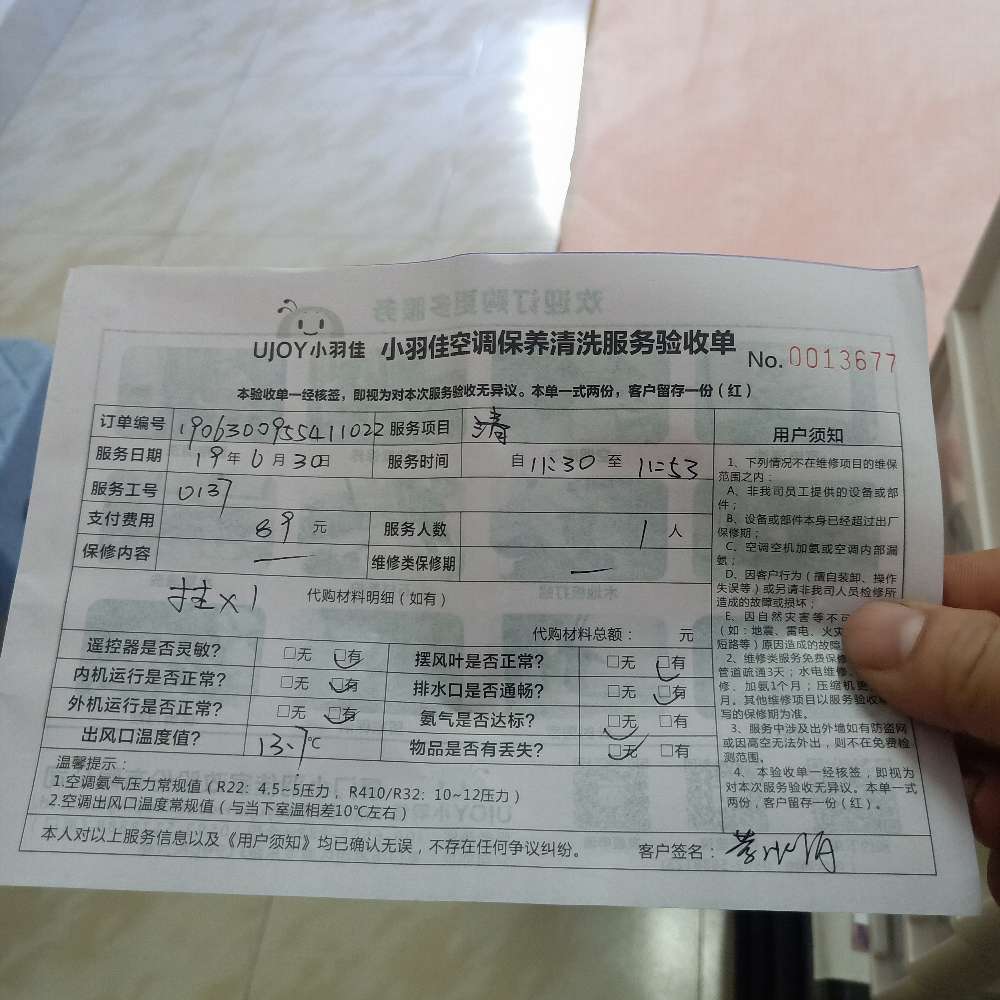 UJOY小羽佳 小羽佳空调保养清洗服务验收单 No.0013677
本验收单一经核签，即视为对本次服务验收无异议。本单一式两份，客户留存一份（红）
订单编号 1906300955411022 服务项目 清
服务日期 19年6月30日 服务时间 自11:30至11:53
服务工号 0137
支付费用 89元 服务人数 1人
保修内容 — 维修类保修期 —
挂×1 代购材料明细（如有）
代购材料总额： 元
遥控器是否灵敏？ □无 □有 摆风叶是否正常？ □无 □有
内机运行是否正常？ □无 □有 排水口是否通畅？ □无 □有
外机运行是否正常？ □无 □有 氨气是否达标？ □无 □有
出风口温度值？ 13.7℃ 物品是否有丢失？ □无 □有
温馨提示：
1.空调氨气压力常规值（R22: 4.5~5压力，R410/R32: 10~12压力）
2.空调出风口温度常规值（与当下室温相差10℃左右）
本人对以上服务信息以及《用户须知》均已确认无误，不存在任何争议纠纷。 客户签名：
用户须知
1、下列情况不在维修项目的维保
范围之内：
A、非我司员工提供的设备或部
件；
B、设备或部件本身已经超过出厂
保修期；
C、空调空机加氨或空调内部漏
氨；
D、因客户行为（擅自装卸、操作
失误等）或另请非我司人员检修所
造成的故障或损坏；
E、因自然灾害等不可
（如：地震、雷电、火灾
短路等）原因造成的故障
2、维修类服务免费保修
管道疏通3天；水电维修、
修、加氨1个月；压缩机更
月。其他维修项目以服务验收
写的保修期为准。
3、服务中涉及出外墙如有防盗网
或因高空无法外出，则不在免费检
测范围。
4、本验收单一经核签，即视为
对本次服务验收无异议。本单一式
两份，客户留存一份（红）。